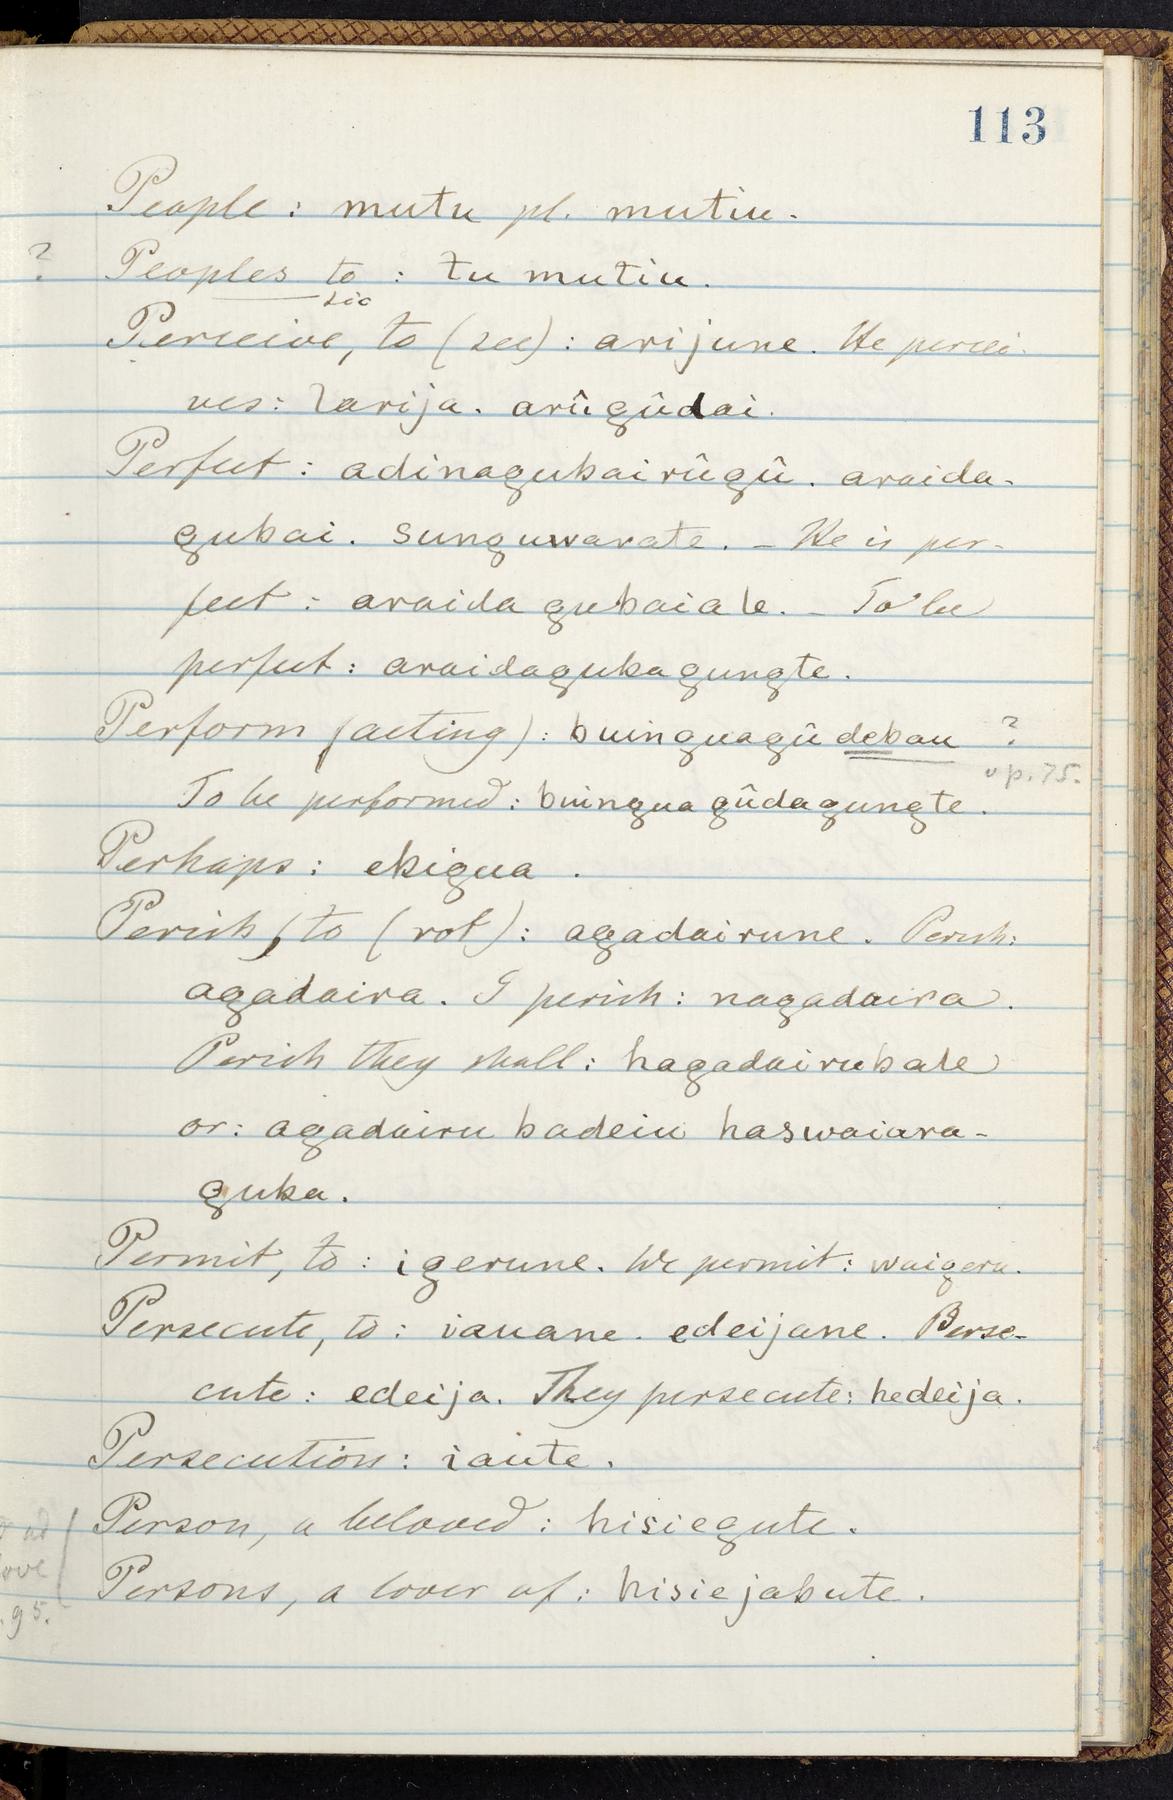 113
People : mutu pl. mutiu.
? Peoples to : tu mutiu.
sic
Perceive, to (see) : arijune. He percei-
ves : larija. arûgûdai.
Perfect : adinagubairûgû. araida-
gubai. sunguwarate. – He is per-
fect : araidagubaiale. – To be
perfect : araidagubagungte.
Perform (acting) : buinguagûdebau ?
v p. 75.
To be performed : buinguagûdagungte.
Perhaps : ekigua.
Perish, to (rot) : agadairune. Perish:
agadaira. I perish : nagadaira.
Perish they shall : hagadairubale
or : agadairu badeiu haswaiara-
guba.
Permit, to : igerune. We permit : waigera.
Persecute, to : iauane. edeijane. Perse-
cute : edeija. They persecute : hedeija.
Persecution : iaute.
Person, a beloved : hisiegute.
Persons, a lover of : hisiejabute.
95.